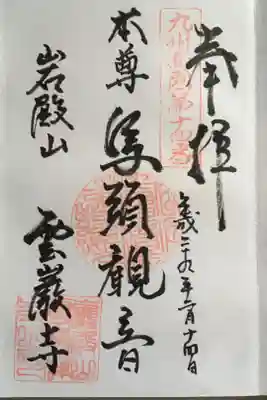 奉拝
九州西国第十四番
平成二十九年二月十四日
本尊
馬頭観音
岩殿山
雲巌寺